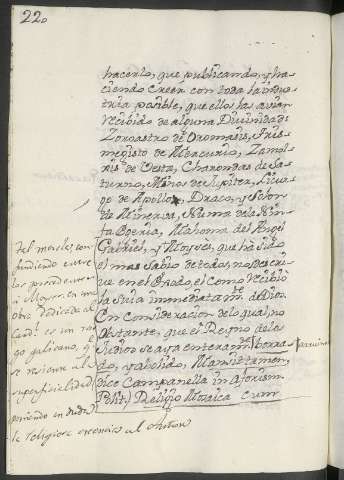 220
hacerlo, que publicando, y ha-
ciendo creer con toda la indus-
tria posible, que ellos las avian
recibido de alguna Divinidad:
Zoroastro de Oromasis, Tris-
megisto de Mercurio, Zamol-
xis de Vesta, Charondas de Sa-
turno, Minos de Jupiter, Licur-
go de Apollo, Draco, y Solon
de Minerva, Numa de la Nin-
fa Egeria, Mahoma del Angel
Gabriel, y Moyses, que ha sido
el mas sabio de todos, nos descri-
ve en el Exodo, el como recibio
la suia immediatam.te de Dios.
En consideracion de lo qual, no
obstante, que el Reyno de los
Judios se aya enteram.te
y abolido, Mansit tamen,
dice Campanella in aforism.
Polit. Religio Mosaica cum
el mezclar, con
fundiendo entre
los
a Moyses, en una
obra dedicada al
Card.l es un ras
go galicano, y
se resiente al
superficialidad
poniendo en duda
la religiosa creencia al christian